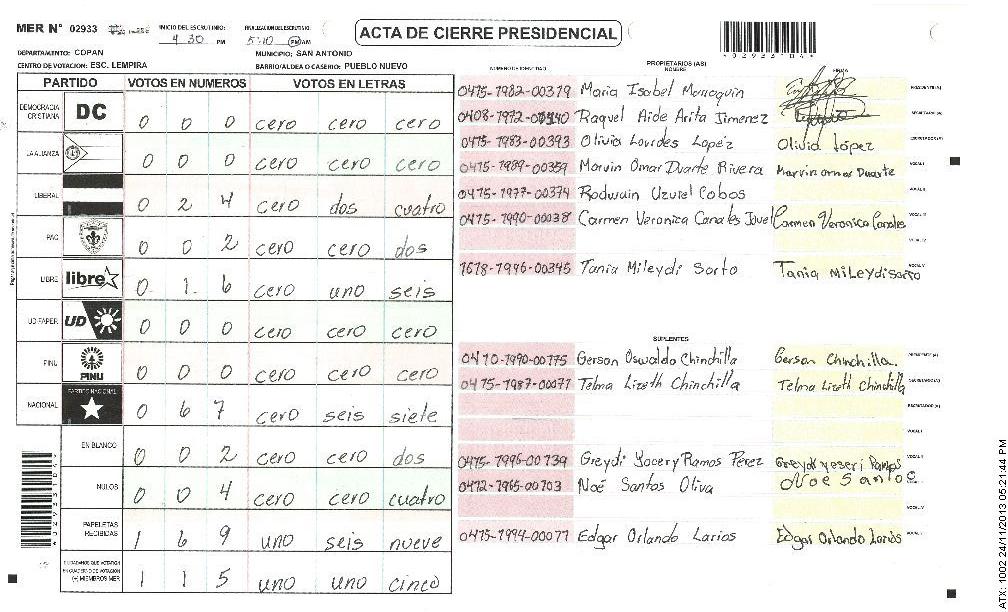 MER N° 02933
INICIO DEL ESCRUTINIO: 4 30 PM
FINALIZACION DEL ESCRUTINIO: 5:10 PM AM
ACTA DE CIERRE PRESIDENCIAL
*02933*
DEPARTAMENTO: COPAN
MUNICIPIO: SAN ANTONIO
CENTRO DE VOTACION: ESC. LEMPIRA
BARRIO/ALDEA O CASERIO: PUEBLO NUEVO
PARTIDO VOTOS EN NUMEROS VOTOS EN LETRAS
DEMOCRACIA CRISTIANA DC 0 0 0 cero cero cero
LA ALIANZA 0 0 0 cero cero cero
LIBERAL 0 2 4 cero dos cuatro
PAC 0 0 2 cero cero dos
LIBRE libre 0 1 6 cero uno seis
UD FAPER UD 0 0 0 cero cero cero
PINU PINU 0 0 0 cero cero cero
NACIONAL PARTIDO NACIONAL 0 6 7 cero seis siete
EN BLANCO 0 0 2 cero cero dos
NULOS 0 0 4 cero cero cuatro
PAPELETAS RECIBIDAS 1 6 9 uno seis nueve
CIUDADANOS QUE VOTARON EN CUADERNO DE VOTACION (+) MIEMBROS MER 1 1 5 uno uno cinco
PROPIETARIOS (AS)
NUMERO DE IDENTIDAD NOMBRE FIRMA
0475-1982-00379 Maria Isabel Marroquin PRESIDENTE (A)
0408-1972-00340 Raquel Aide Arita Jimenez SECRETARIO (A)
0475-1983-00393 Olivia Lourdes Lopéz Olivia López ESCRUTADOR (A)
0475-1989-00359 Marvin Omar Duarte Rivera Marvin omar Duarte VOCAL I
0475-1977-00374 Rodwain Uzuiel Cobos VOCAL II
0475-1990-00038 Carmen Veronica Canales Carmen Veronica Canales VOCAL III
VOCAL IV
1618-1996-00345 Tania Mileydi Sorto Tania Mileydi Sorto VOCAL V
SUPLENTES
0410-1990-00775 Gerson Oswaldo Chinchilla Gerson Chinchilla PRESIDENTE (A)
0475-1987-00077 Telma Lizeth Chinchilla Telma Lizeth Chinchilla SECRETARIO (A)
ESCRUTADOR (A)
VOCAL I
0475-1996-00739 Greydi Yocery Ramos Pérez Greydi yeseri Ramos VOCAL II
0472-1965-00703 Noé Santos Oliva Noe Santo VOCAL III
VOCAL IV
0475-1994-00077 Edgar Orlando Larios Edgar Orlando Larios VOCAL V
ATX: 1002 24/11/2013 05:21:44 PM